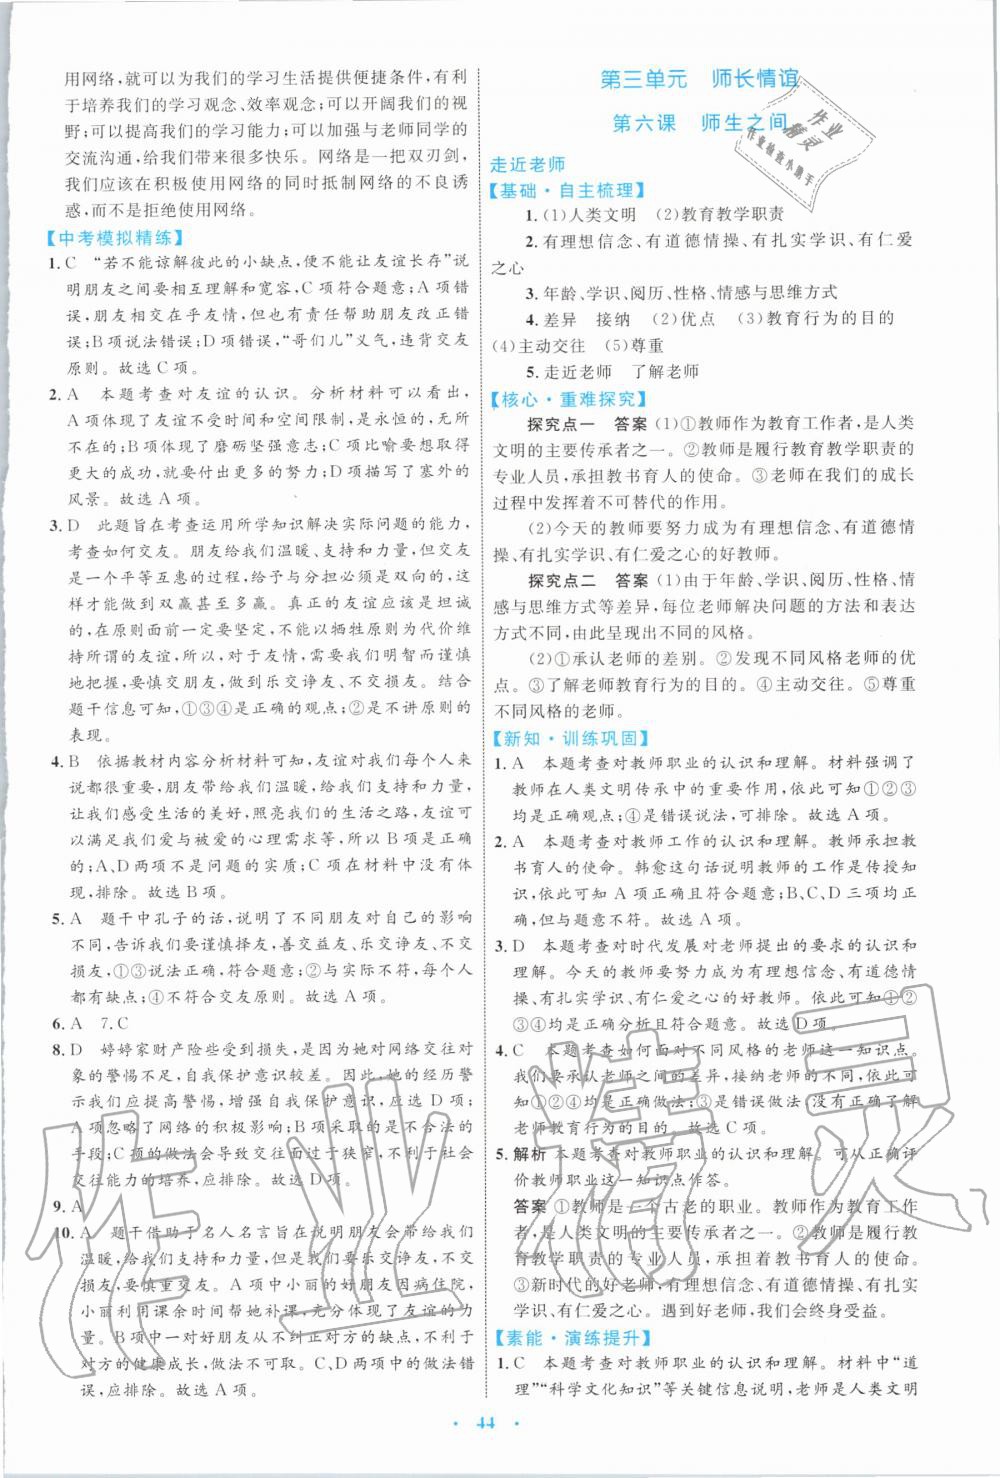 用网络，就可以为我们的学习生活提供便捷条件，有利
于培养我们的学习观念、效率观念；可以开阔我们的视
野；可以提高我们的学习能力；可以加强与老师同学的
交流沟通，给我们带来很多快乐。网络是一把双刃剑，
我们应该在积极使用网络的同时抵制网络的不良诱
惑，而不是拒绝使用网络。
【中考模拟精练】
1. C　“若不能谅解彼此的小缺点，便不能让友谊长存”说
明朋友之间要相互理解和宽容，C 项符合题意；A 项错
误，朋友相交在乎友情，但也有责任帮助朋友改正错
误；B 项说法错误；D 项错误，“哥们儿”义气，违背交友
原则。故选 C 项。
2. A　本题考查对友谊的认识。分析材料可以看出，
A 项体现了友谊不受时间和空间限制，是永恒的，无所
不在的；B 项体现了磨砺坚强意志；C 项比喻要想取得
更大的成功，就要付出更多的努力；D 项描写了塞外的
风景。故选 A 项。
3. D　此题旨在考查运用所学知识解决实际问题的能力，
考查如何交友。朋友给我们温暖、支持和力量，但交友
是一个平等互惠的过程，给予与分担必须是双向的，这
样才能做到双赢甚至多赢。真正的友谊应该是坦诚
的，在原则面前一定要坚定，不能以牺牲原则为代价维
持所谓的友谊，所以，对于友情，需要我们明智而谨慎
地把握，要慎交朋友，做到乐交诤友、不交损友。结合
题干信息可知，①③④是正确的观点；②是不讲原则的
表现。
4. B　依据教材内容分析材料可知，友谊对我们每个人来
说都很重要，朋友带给我们温暖，给我们支持和力量，
让我们感受生活的美好，照亮我们的生活之路，友谊可
以满足我们爱与被爱的心理需求等，所以 B 项符合题
意的；A、D 两项不是问题的实质；C 项在材料中没有体
现，排除。故选 B 项。
5. A　题干中孔子的话，说明了不同朋友对自己的影响
不同，告诉我们要谨慎择友，善交益友、乐交诤友、不交
损友，①③说法正确，符合题意；②与实际不符，每个人
都有缺点；④不符合交友原则。故选 A 项。
6. A　7. C
8. D　婷婷家财产险些受到损失，是因为她对网络交往对
象的警惕不足，自我保护意识较差。因此，她的经历警
示我们应提高警惕，增强自我保护意识，应选 D 项；
A 项忽略了网络的积极影响；B 项采取的是不合法的
手段；C 项的做法会导致交往过于狭窄，不利于社会
交往能力的培养，应排除。故选 D 项。
9. A
10. A　题干借助于名人名言旨在说明朋友会带给我们
温暖，给我们支持和力量，所以我们要乐交诤友、益
友，要慎重交友。A 项中小丽的好朋友因病住院，
小丽利用课余时间帮她补课，充分体现了友谊的力
量。B 项中一对好朋友从不纠正对方的缺点，不利于
对方的健康成长，做法不可取。C、D 两项中的做法错
误，应排除。故选 A 项。
第三单元　师长情谊
第六课　师生之间
走近老师
【基础·自主梳理】
1. (1)人类文明　(2)教育教学职责
2. 有理想信念、有道德情操、有扎实学识、有仁爱
之心
3. 年龄、学识、阅历、性格、情感与思维方式
4. 差异　接纳　(2)优点　(3)教育行为的目的
(4)主动交往　(5)尊重
5. 走近老师　了解老师
【核心·重难探究】
探究点一　答案　(1)①教师作为教育工作者，是人类
文明的主要传承者之一。②教师是履行教育教学职责的
专业人员，承担教书育人的使命。③老师在我们的成长
过程中发挥着不可替代的作用。
(2)今天的教师要努力成为有理想信念、有道德情
操、有扎实学识、有仁爱之心的好教师。
探究点二　答案　(1)由于年龄、学识、阅历、性格、情
感与思维方式等差异，每位老师解决问题的方法和表达
方式不同，由此呈现出不同的风格。
(2)①承认老师的差别。②发现不同风格老师的优
点。③了解老师教育行为的目的。④主动交往。⑤尊重
不同风格的老师。
【新知·训练巩固】
1. A　本题考查对教师职业的认识和理解。材料强调了
教师在人类文明传承中的重要作用，依此可知①②③
均是正确观点；④是错误说法，可排除。故选 A 项。
2. A　本题考查对教师工作的认识和理解。教师承担教
书育人的使命。韩愈这句话说明教师的工作是传授知
识，依此可知 A 项正确且符合题意；B、C、D 三项均正
确，但与题意不符。故选 A 项。
3. D　本题考查对时代发展对老师提出的要求的认识和
理解。今天的教师要努力成为有理想信念、有道德情
操、有扎实学识、有仁爱之心的好教师。依此可知①②
③④均是正确分析且符合题意。故选 D 项。
4. C　本题考查如何面对不同风格的老师这一知识点。
我们要承认老师之间的差异，接纳老师的不同，依此可
知①②④是正确做法；③是错误做法，没有正确了解老
师教育行为的目的。故选 C 项。
5. 解析　本题考查对教师职业的认识和理解。可从正确评
价教师职业这一知识点作答。
答案　①教师是一个古老的职业。教师作为教育工作
者，是人类文明的主要传承者之一。②教师是履行教
育教学职责的专业人员，承担着教书育人的使命。
③新时代的好老师，有理想信念、有道德情操、有扎实
学识、有仁爱之心。遇到好老师，我们会终身受益。
【素能·演练提升】
1. C　本题考查对教师职业的认识和理解。材料中“道
理”“科学文化知识”等关键信息说明，老师是人类文明
· 44 ·
作业
精灵
作业检查小帮手
作业精灵